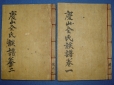 慶山全氏族譜卷一
慶山全氏族譜卷二